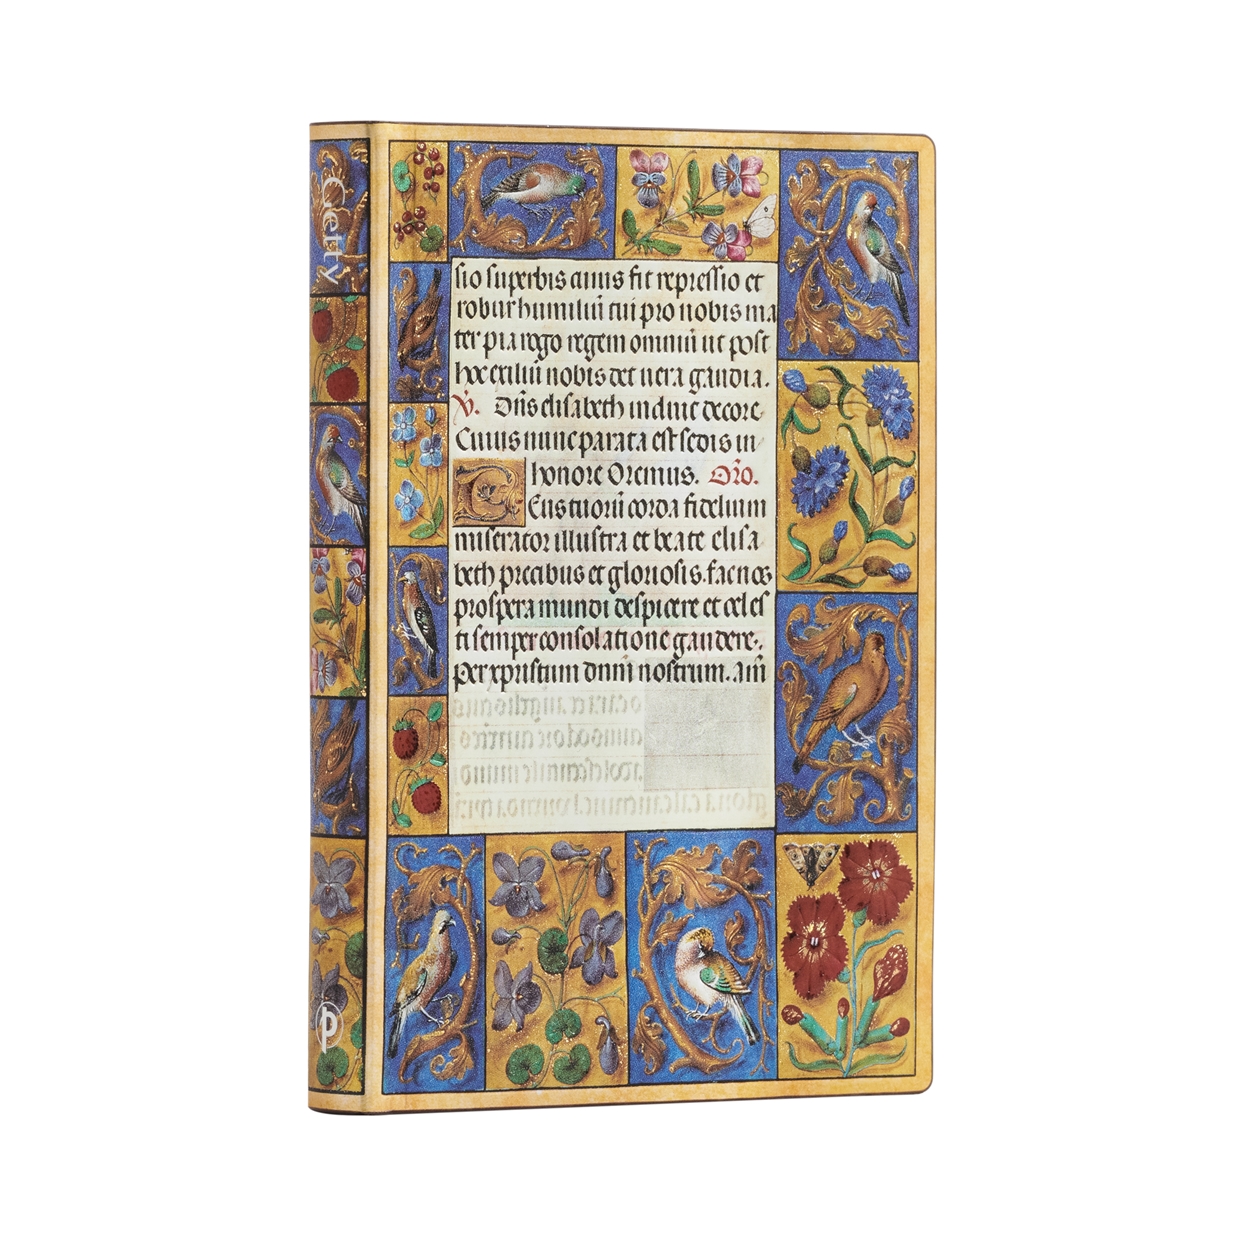 Getty
sio superbis cuius fit repressio et
robur humiliũ tui pro nobis ma
ter pia rogo regem omniũ ut post
hoc exiliũ nobis det uera gaudia.
V̇. Dñs elisabeth induit decore
Cuius nunc parata est sedis in
honore Oremus. Orõ.
Deus tuorũ corda fidelium
miserator illustra et beate elisa
beth precibus et gloriosis. fac nos
prospera mundi despicere et celes
ti semper consolatione gaudere.
Per xpristum dnm̃ nostrum. am̃
p